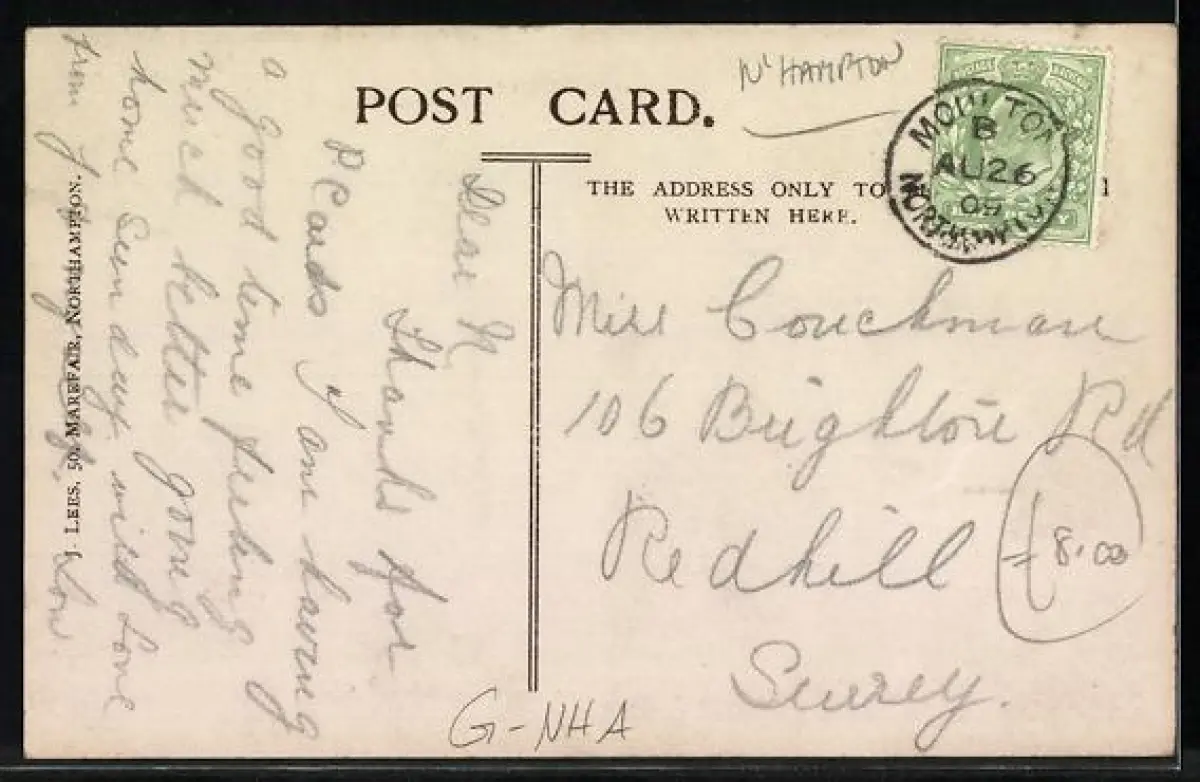 POST CARD.
N'HAMPTON
THE ADDRESS ONLY TO
WRITTEN HERE.
MOULTON
B
AU 26
09
NORTHAMPTON
Miss Couchman
106 Brighton Rd
Redhill
Surrey.
£8.00
G-NHA
Dear N
Thanks for
P Cards I am having
a good time feeling
much better going
home Sunday with love
from
J. LEES, 50, MAREFAIR, NORTHAMPTON.